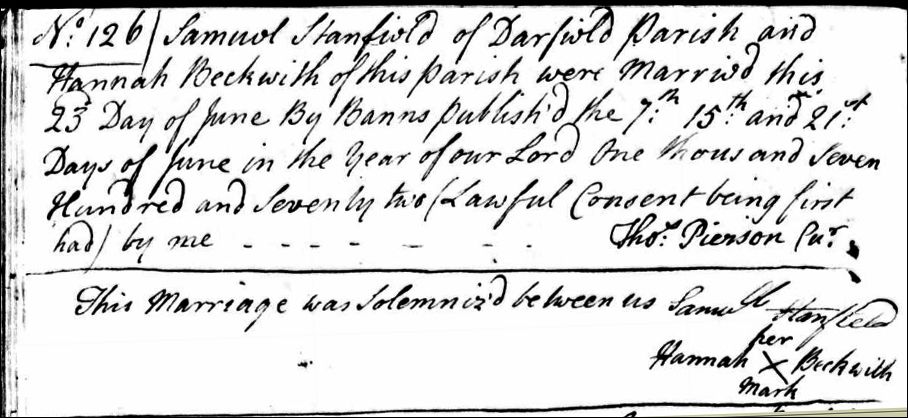 No. 126 Samuel Stanfield of Darfield Parish and
Hannah Beckwith of this parish were Married this
23d Day of June By Banns Publish'd the 7th 15th and 21st
Days of June in the Year of our Lord One thousand Seven
Hundred and Seventy two (Lawful Consent being first
had) by me - - - - - - - Thos. Pierson Cur.
This Marriage was Solemniz'd between us Samuell Stanfield
her
Hannah X Beckwith
Mark